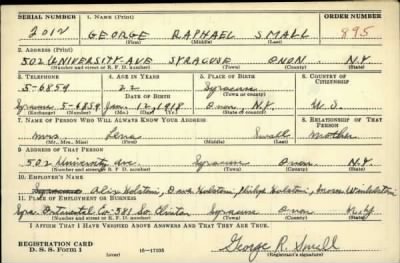 SERIAL NUMBER 1. NAME (Print) ORDER NUMBER
2012 GEORGE RAPHAEL SMALL 895
(First) (Middle) (Last)
2. ADDRESS (Print)
502 UNIVERSITY-AVE SYRACUSE ONON. N.Y.
(Number and street or R. F. D. number) (Town) (County) (State)
3. TELEPHONE 4. AGE IN YEARS 5. PLACE OF BIRTH 6. COUNTRY OF CITIZENSHIP
5-6859 22 Syracuse
DATE OF BIRTH (Town or county)
Syracuse 5-6859 Jan. 12, 1918 Onon N.Y. U.S.
(Exchange) (Number) (Mo.) (Day) (Yr.) (State or country)
7. NAME OF PERSON WHO WILL ALWAYS KNOW YOUR ADDRESS 8. RELATIONSHIP OF THAT PERSON
Mrs Lena Small Mother
(Mr., Mrs., Miss) (First) (Middle) (Last)
9. ADDRESS OF THAT PERSON
502 University Ave. Syracuse Onon N.Y.
(Number and street or R. F. D. number) (Town) (County) (State)
10. EMPLOYER'S NAME
Alix Holstein, Dave Holstein, Philip Holstein,
11. PLACE OF EMPLOYMENT OR BUSINESS
Syr. Co-381 So. Clinton Syracuse Onon N.Y.
(Number and street or R. F. D. number) (Town) (County) (State)
I AFFIRM THAT I HAVE VERIFIED ABOVE ANSWERS AND THAT THEY ARE TRUE.
REGISTRATION CARD
D. S. S. FORM 1 (over) 16—17105 George R. Small
(Registrant's signature)